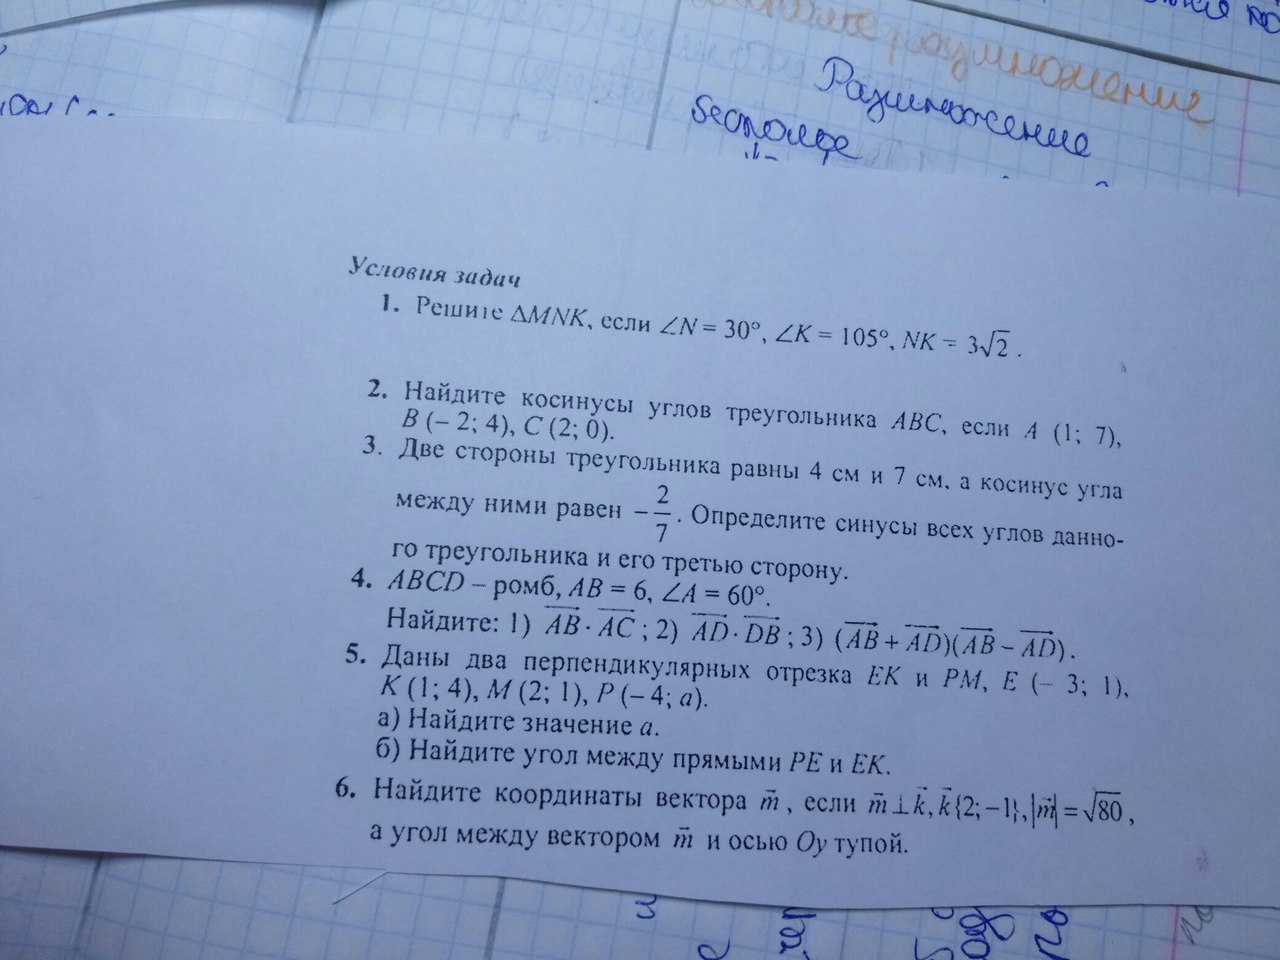 размножение
Размножение
бесполое
Условия задач
1. Решите ΔMNK, если ∠N = 30°, ∠K = 105°, NK = 3√2 .
2. Найдите косинусы углов треугольника ABC, если A (1; 7),
B (– 2; 4), C (2; 0).
3. Две стороны треугольника равны 4 см и 7 см, а косинус угла
между ними равен −2/7 . Определите синусы всех углов данно-
го треугольника и его третью сторону.
4. ABCD – ромб, AB = 6, ∠A = 60°.
Найдите: 1) \overrightarrow{AB} · \overrightarrow{AC} ; 2) \overrightarrow{AD} · \overrightarrow{DB} ; 3) (\overrightarrow{AB} + \overrightarrow{AD})(\overrightarrow{AB} − \overrightarrow{AD}) .
5. Даны два перпендикулярных отрезка EK и PM, E (– 3; 1),
K (1; 4), M (2; 1), P (– 4; a).
а) Найдите значение a.
б) Найдите угол между прямыми PE и EK.
6. Найдите координаты вектора \vec{m} , если \vec{m} ⊥ \vec{k}, \vec{k}{2; −1}, |\vec{m}| = √80 ,
а угол между вектором \vec{m} и осью Oy тупой.